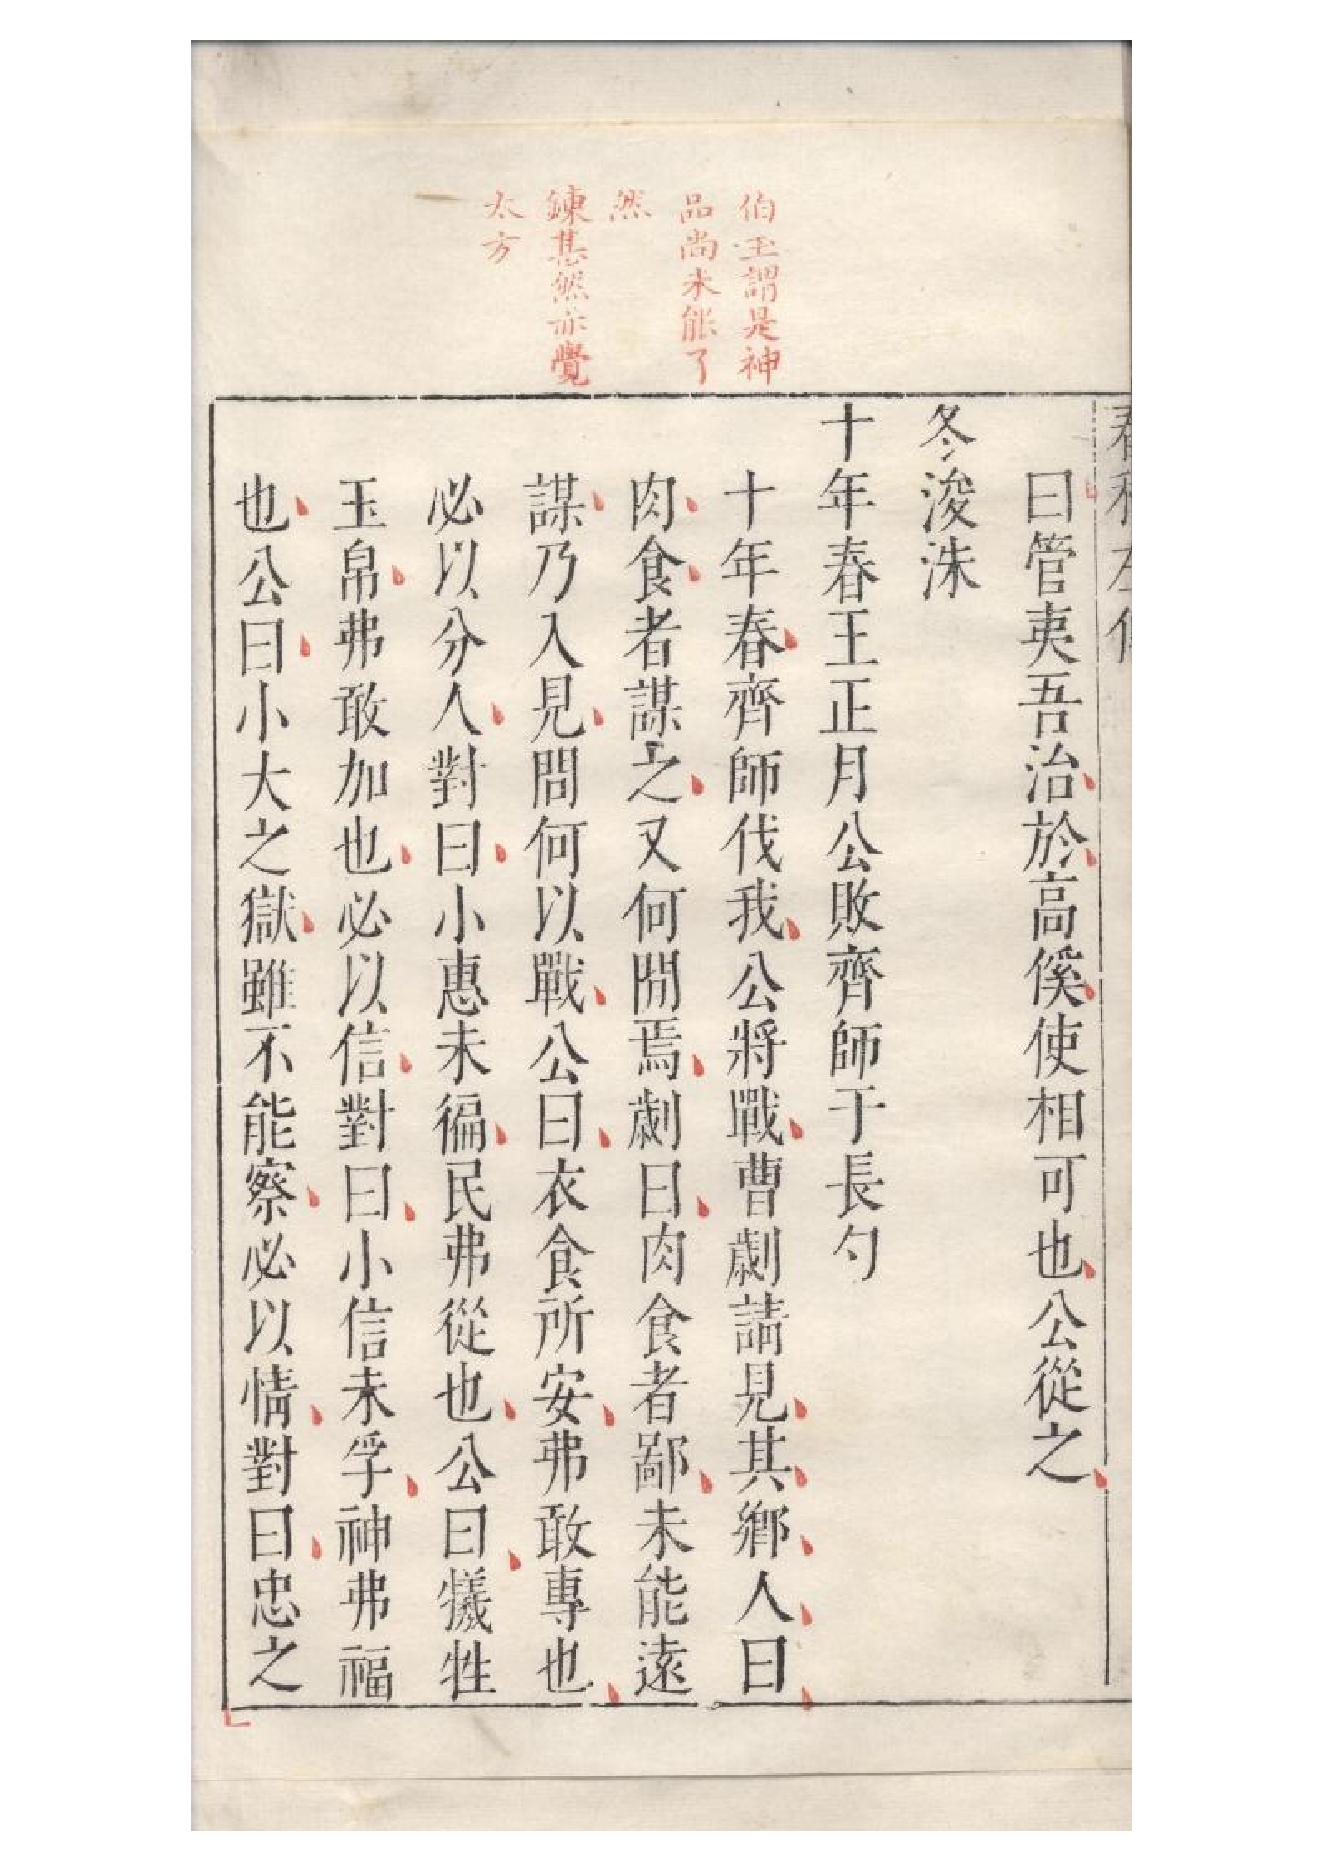 伯玉謂是神
品尚未能了
然
鍊甚然亦覺
太方
春秋左傳
曰管夷吾治於高傒使相可也公從之
冬浚洙
十年春王正月公敗齊師于長勺
十年春齊師伐我公將戰曹劌請見其鄉人曰
肉食者謀之又何間焉劌曰肉食者鄙未能遠
謀乃入見問何以戰公曰衣食所安弗敢專也
必以分人對曰小惠未徧民弗從也公曰犧牲
玉帛弗敢加也必以信對曰小信未孚神弗福
也公曰小大之獄雖不能察必以情對曰忠之